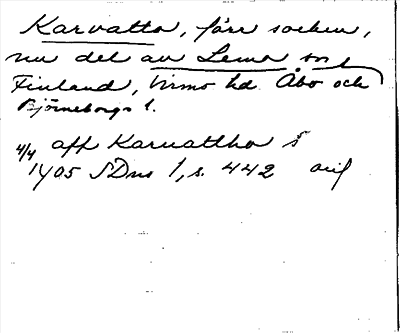 Karvatto, förr socken,
nu del av Lemo sn
Finland, Virmo hd Åbo och
Björneborgs l.
4/4 aff Karuattho s
1405 SDns 1, s. 442 orig